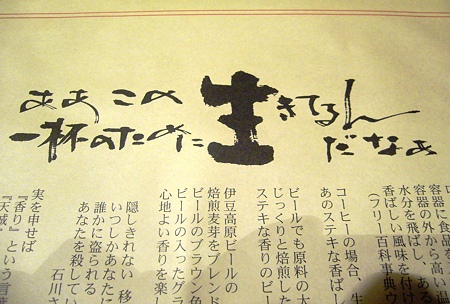 ああ この
一杯のために
生きてるん
だなぁ
容器に食品を
容器の外から高い温
水分を飛ばし、ある
香ばしい風味を付け
(フリー百科事典ウ
コーヒーの場合、生
あのステキな香ばし
ビールでも原料の大
じっくりと焙煎した
ステキな香りのビー
伊豆高原ビールの
焙煎麦芽をブレンド
ビールのブラウン色
ビールの入ったグラ
心地よい香りを楽し
隠しきれない 移
いつしかあなたに
誰かに盗られる
あなたを殺してい
石川さ
実を申せば
『香り』という言葉
『天城